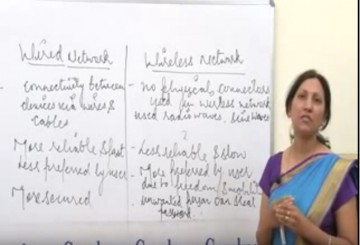 Wired Network
Wireless Network
- Connectivity between
devices via wires &
cables
More reliable & fast
Less preferred by user
More secured
- no physical connections
used in wireless network
used radio waves,
- Less reliable & slow
- More preferred by user
due to freedom & mobility
- unwanted person can steal
password